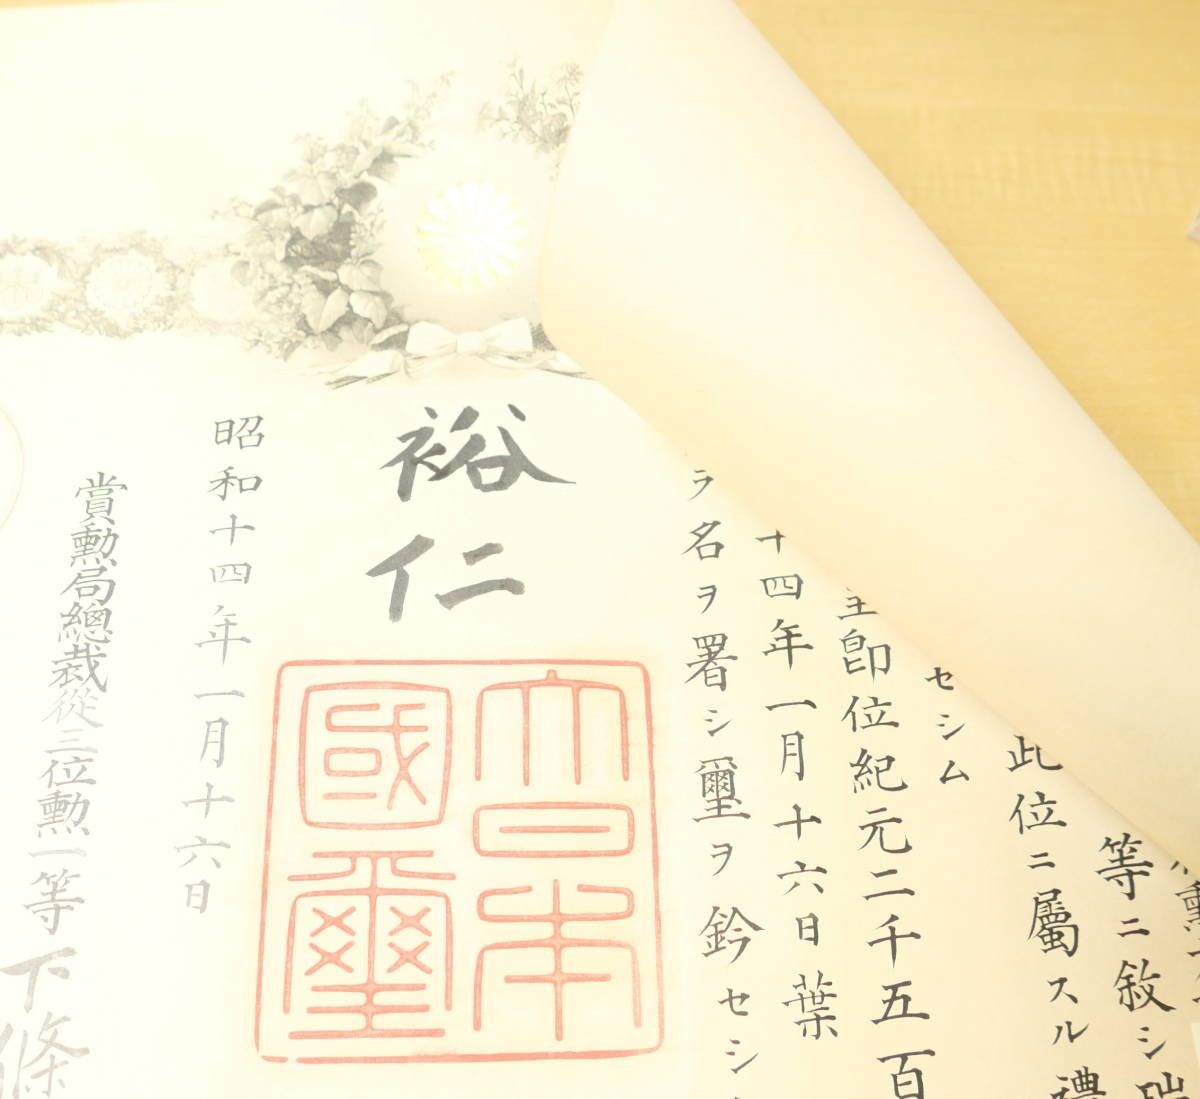 勲
等ニ敘シ瑞
此位ニ屬スル禮
セシム
皇卽位紀元二千五百
十四年一月十六日葉
ラ名ヲ署シ璽ヲ鈐セシ
裕仁
大日本國璽
昭和十四年一月十六日
賞勳局總裁從三位勳一等下條